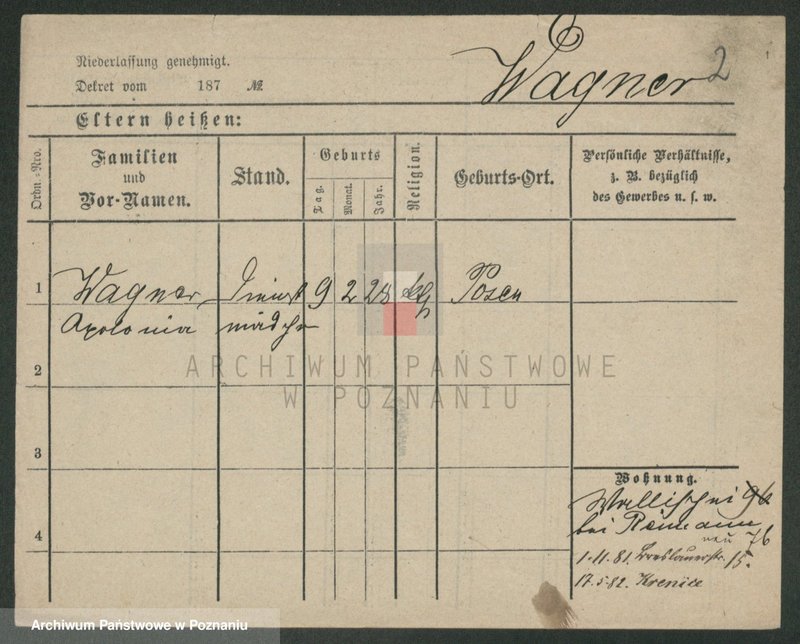 Niederlassung genehmigt.
Dekret vom 187 №.
Wagner 2
Eltern heißen:
Ordn.-Nro.
Familien und Vor-Namen.
Stand.
Geburts
Tag.
Monat.
Jahr.
Religion.
Geburts-Ort.
Persönliche Verhältnisse,
z. B. bezüglich
des Gewerbes u. s. w.
1 Wagner Dienst 9 2 28 kth Posen
Apolonia mädchen
ARCHIWUM PAŃSTWOWE
W POZNANIU
2
3
4
Wohnung.
Wallischei 96
bei Reimann
neu 76
1.11.81. Breslauerstr. 15.
17.5.82. Krenite
Archiwum Państwowe w Poznaniu